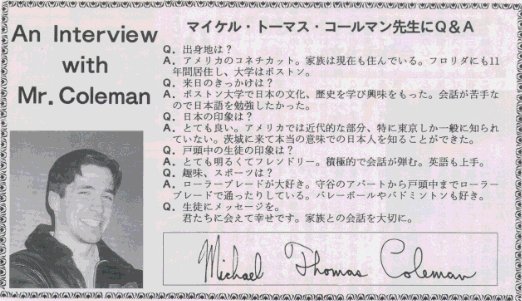 An Interview
with
Mr. Coleman
マイケル・トーマス・コールマン先生にQ&A
Q．出身地は？
A．アメリカのコネチカット。家族は現在も住んでいる。フロリダにも11
年間居住し、大学はボストン。
Q．来日のきっかけは？
A．ボストン大学で日本の文化、歴史を学び興味をもった。会話が苦手な
ので日本語を勉強したかった。
Q．日本の印象は？
A．とても良い。アメリカでは近代的な部分、特に東京しか一般に知られ
ていない。茨城に来て本当の意味での日本人を知ることができた。
Q．戸頭中の生徒の印象は？
A．とても明るくてフレンドリー。積極的で会話が弾む。英語も上手。
Q．趣味、スポーツは？
A．ローラーブレードが大好き。守谷のアパートから戸頭中までローラー
ブレードで通ったりしている。バレーボールやバドミントンも好き。
Q．生徒にメッセージを。
君たちに会えて幸せです。家族との会話を大切に。
Michael Thomas Coleman